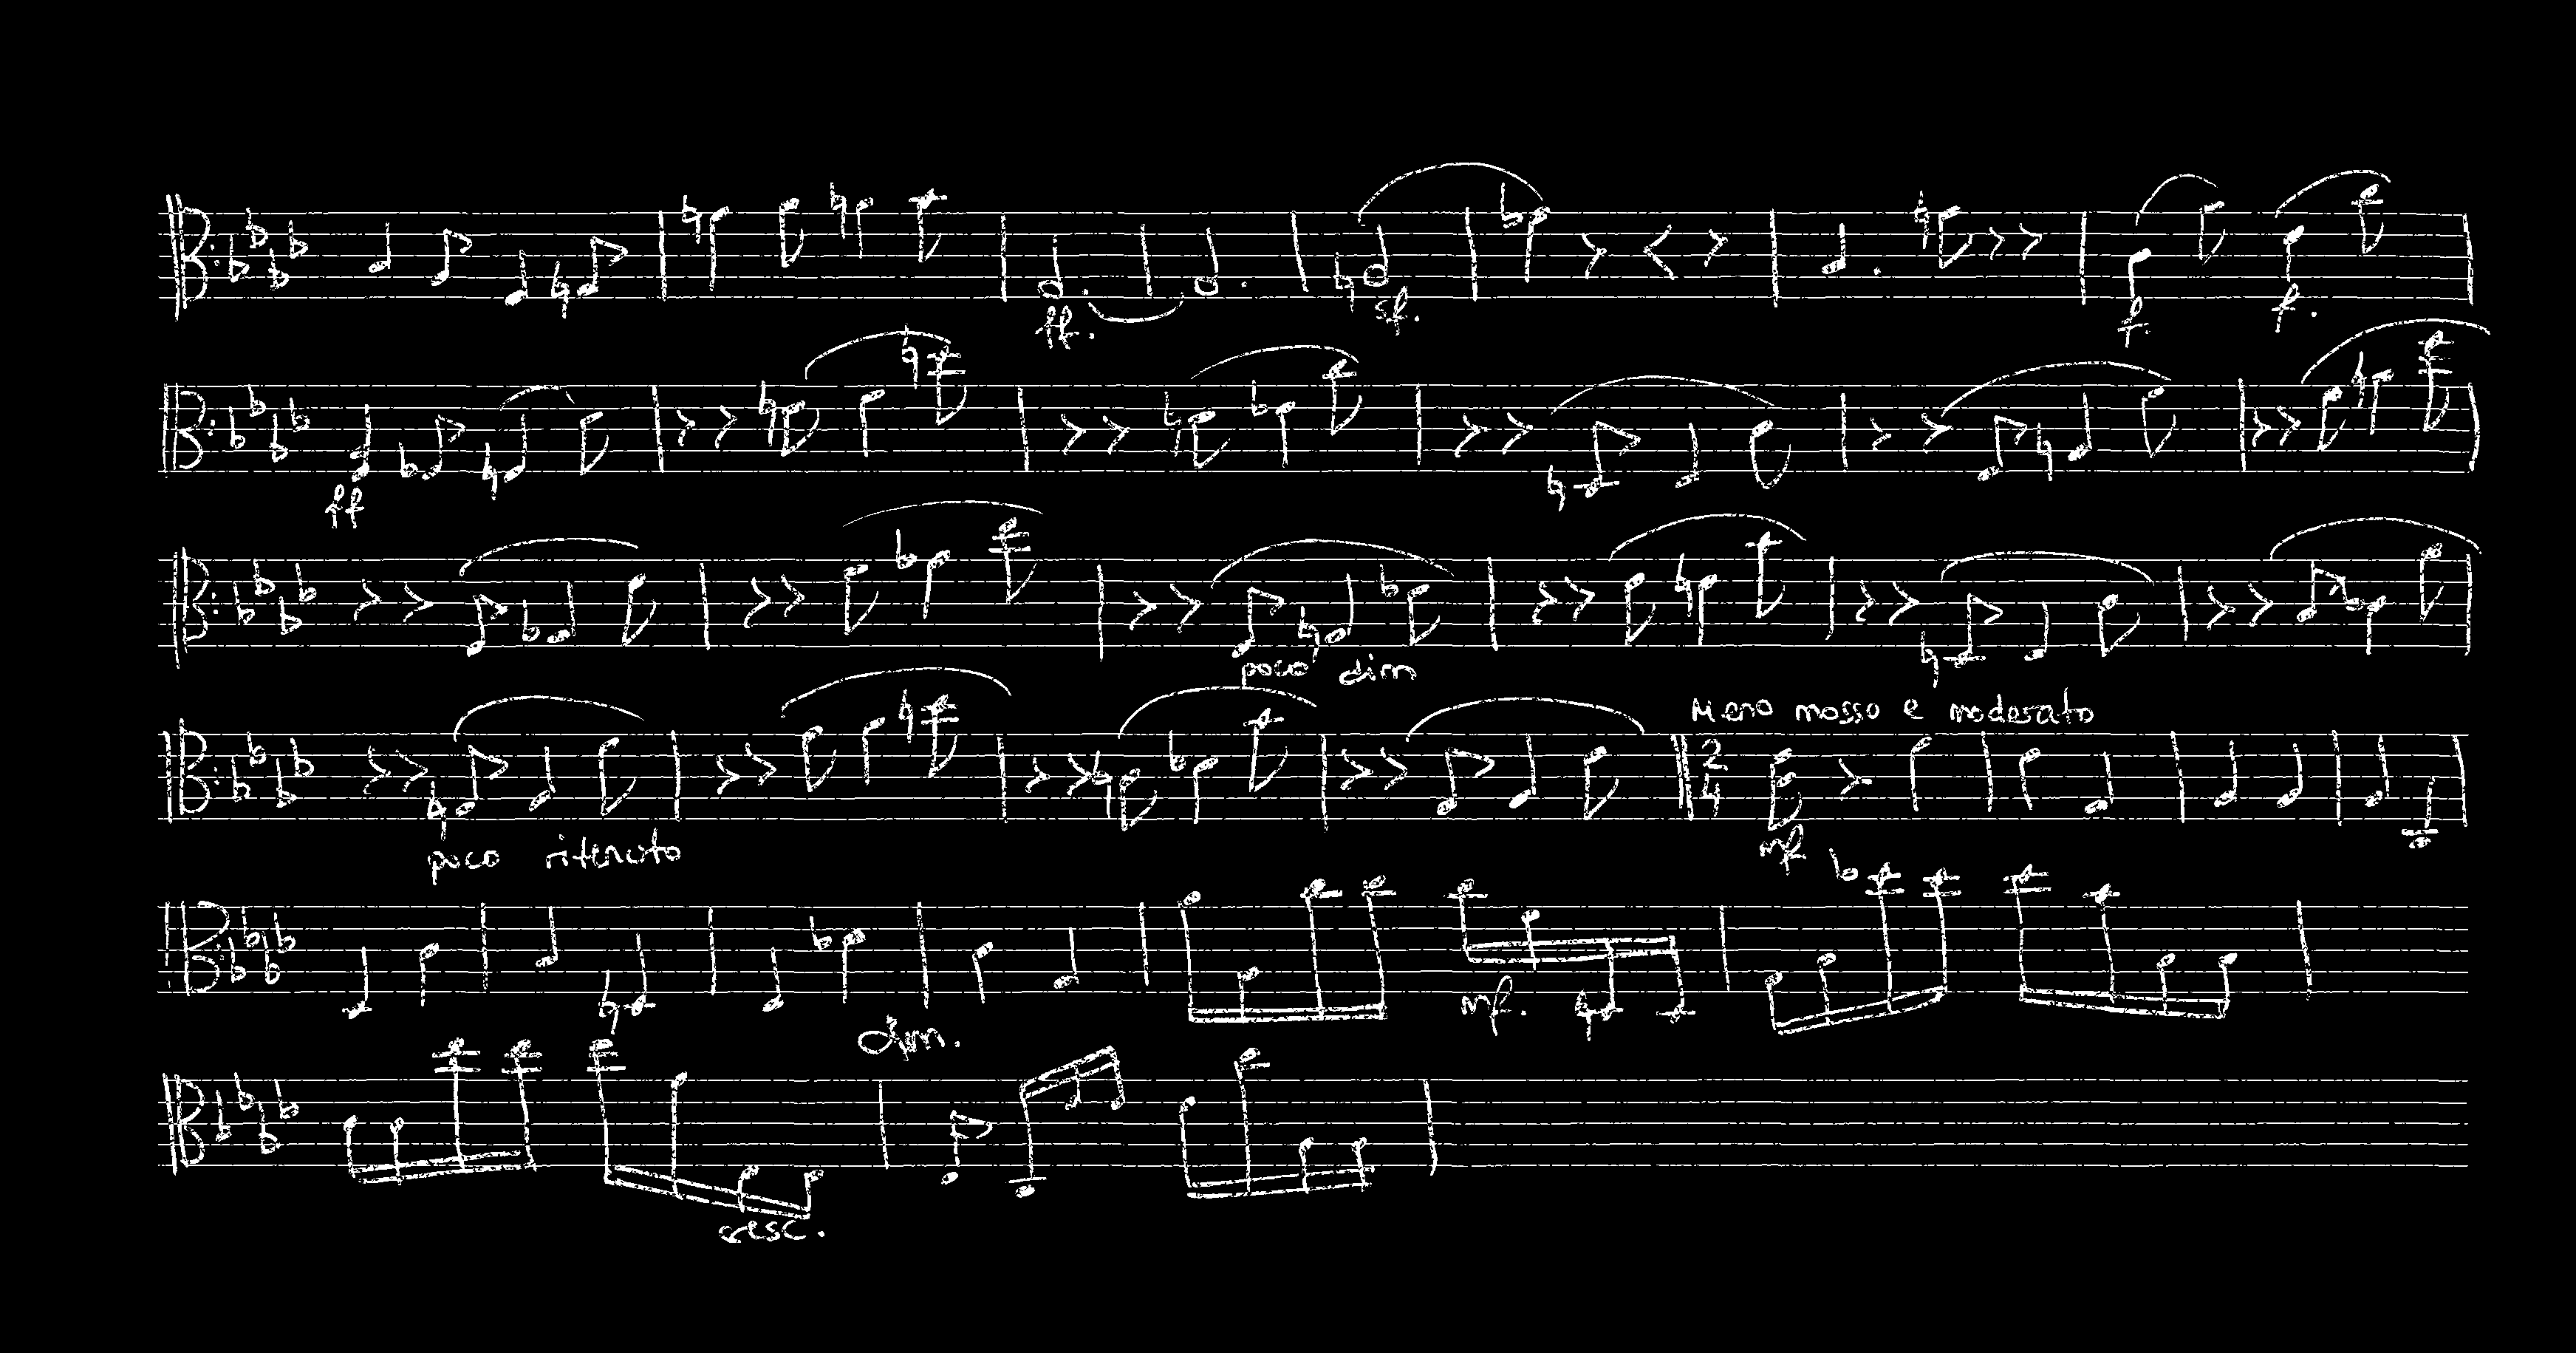 ff. sf. f. f.
ff
poco dim
Meno mosso e moderato
2
4
poco ritenuto mf
mf.
dim.
cresc.